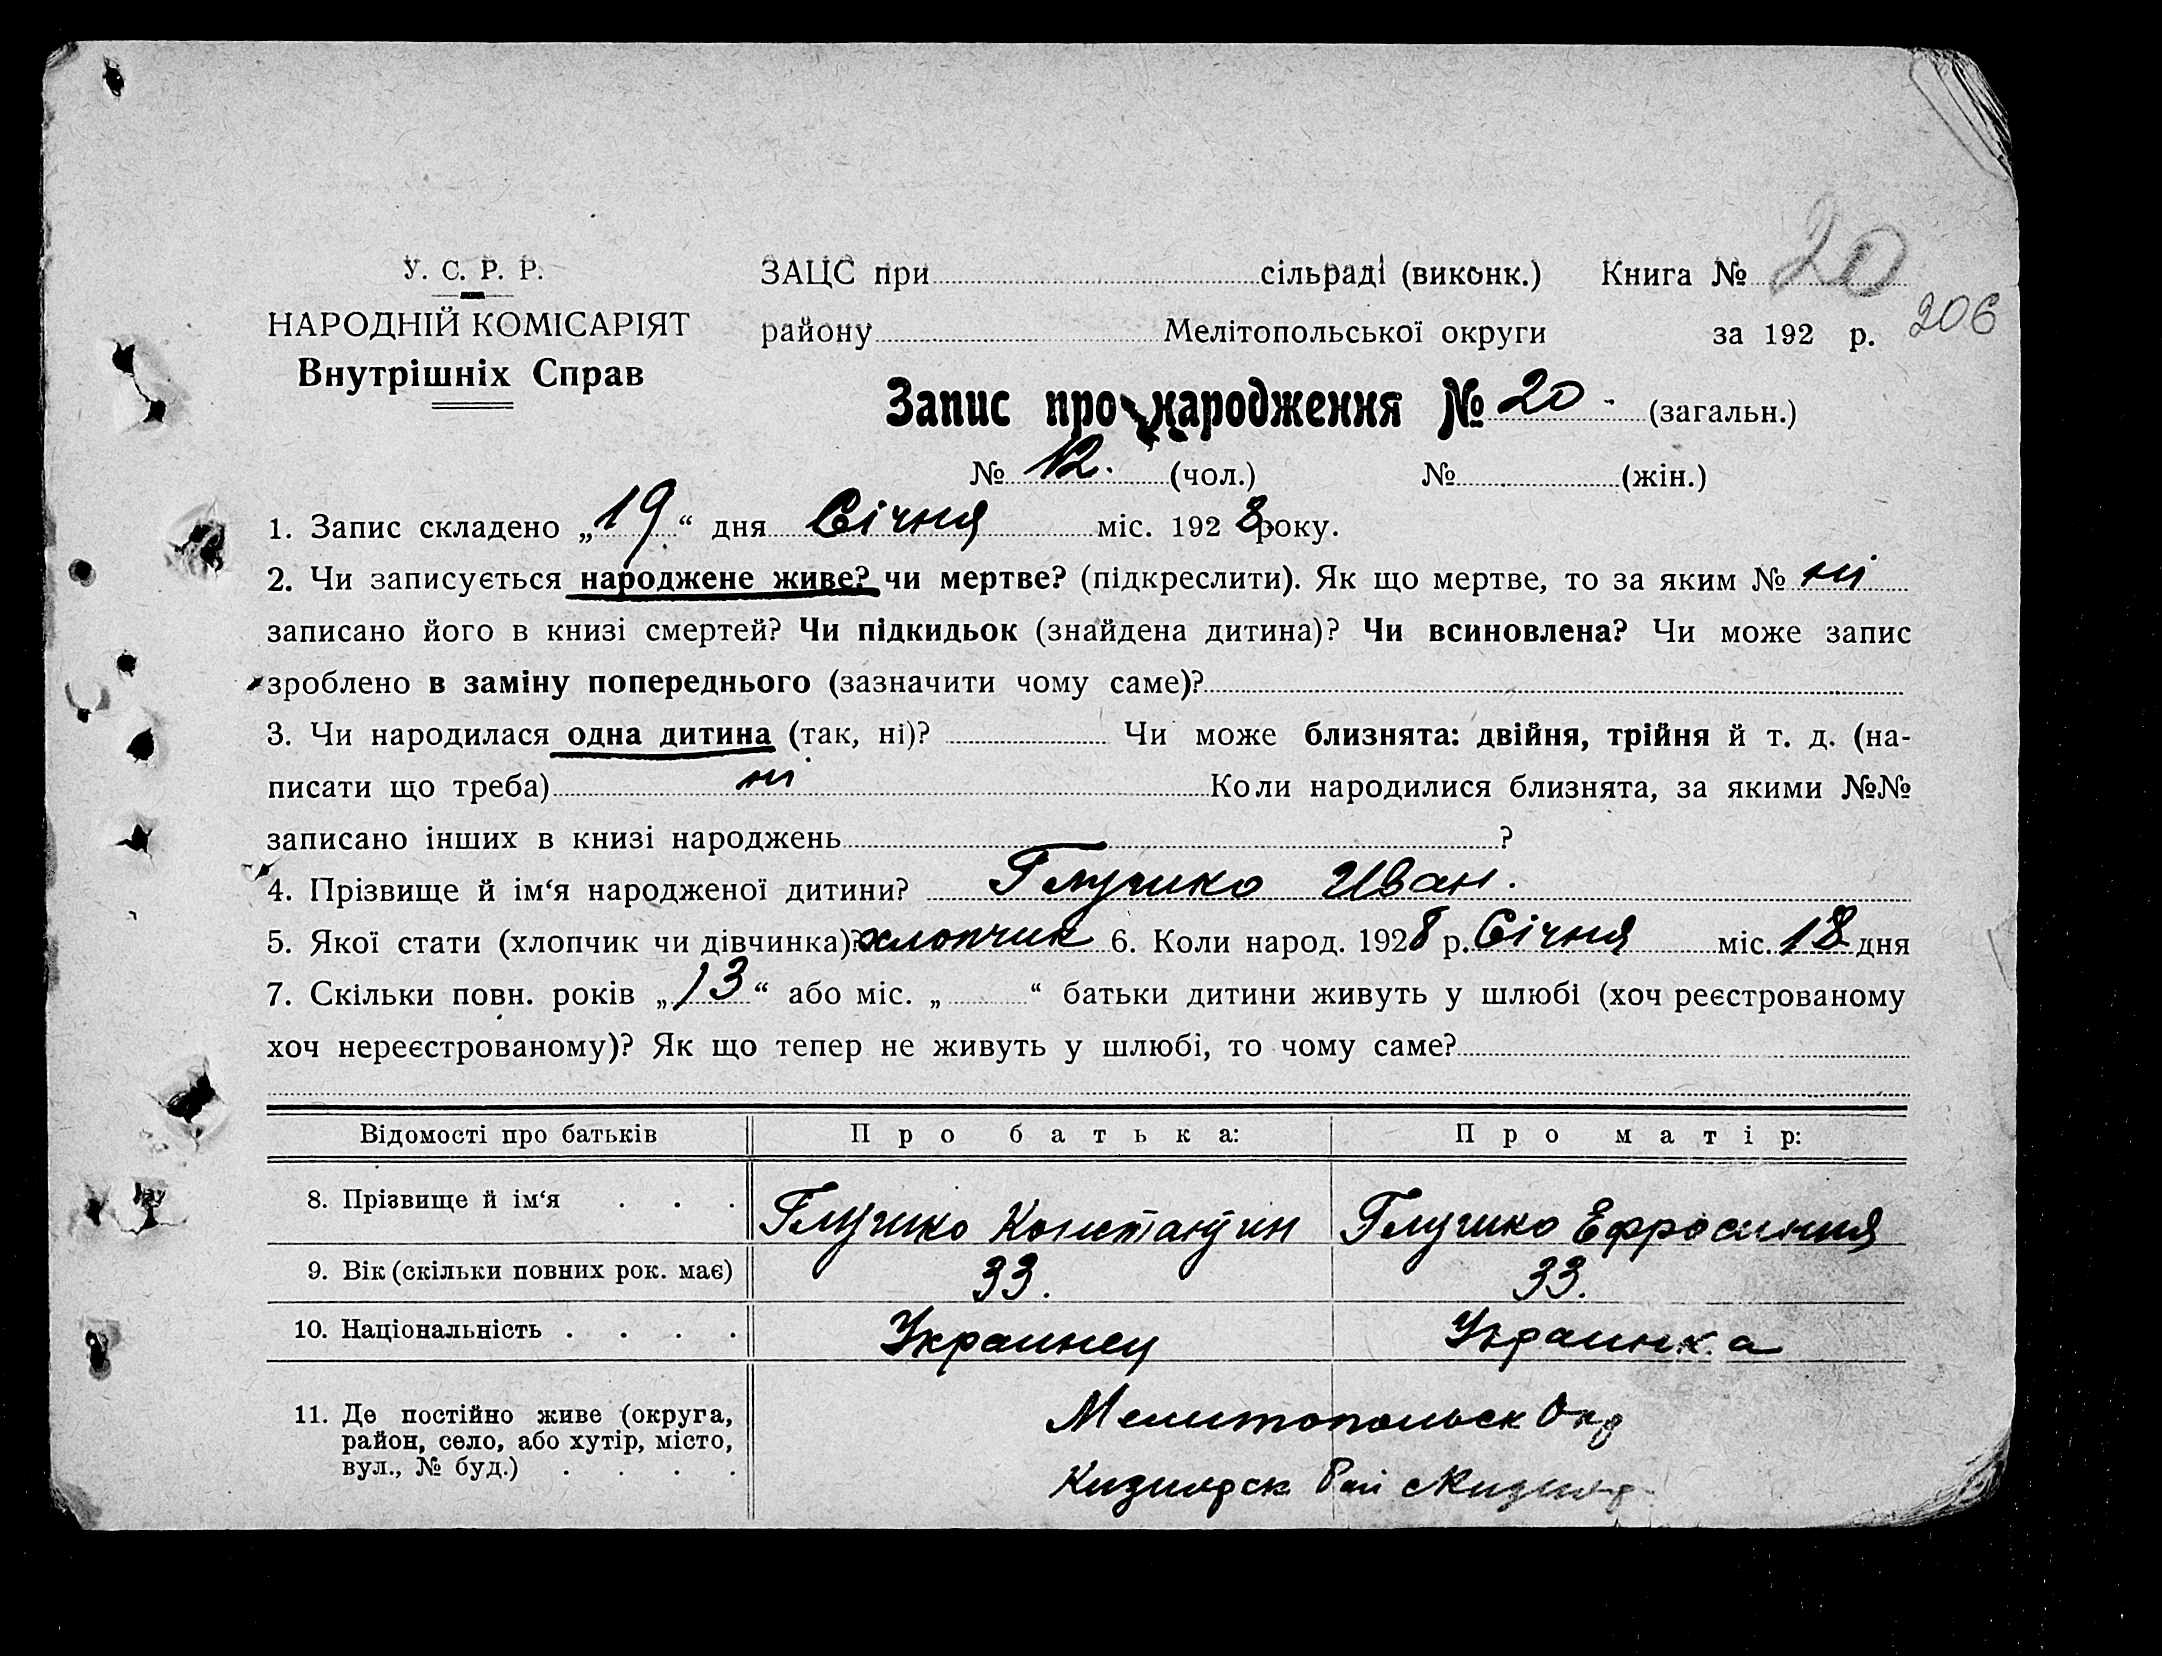 У. С. Р. Р.
НАРОДНІЙ КОМІСАРІЯТ
Внутрішніх Справ
ЗАЦС при сільраді (виконк.) Книга № 20
району Мелітопольської округи за 192 р. 206
Запис про народження № 20 (загальн.)
№ 12. (чол.) № (жін.)
1. Запис складено „19“ дня Січня міс. 1928 року.
2. Чи записується народжене живе? чи мертве? (підкреслити). Як що мертве, то за яким № ні
записано його в книзі смертей? Чи підкидьок (знайдена дитина)? Чи всиновлена? Чи може запис
зроблено в заміну попереднього (зазначити чому саме)?
3. Чи народилася одна дитина (так, ні)? Чи може близнята: двійня, трійня й т. д. (на-
писати що треба) ні Коли народилися близнята, за якими №№
записано інших в книзі народжень ?
4. Прізвище й ім‘я народженої дитини? Глушко Иван.
5. Якої стати (хлопчик чи дівчинка)? хлопчик 6. Коли народ. 1928 р. Січня міс. 18 дня
7. Скільки повн. років „13“ або міс. „ “ батьки дитини живуть у шлюбі (хоч реєстрованому
хоч нереєстрованому)? Як що тепер не живуть у шлюбі, то чому саме?
Відомості про батьків Про батька: Про матір:
8. Прізвище й ім‘я . . . Глушко Константин Глушко Ефросиния
9. Вік (скільки повних рок. має) 33. 33.
10. Національність . . . . Украинец Украинка
11. Де постійно живе (округа,
район, село, або хутір, місто,
вул., № буд.) . . . .
Мелитопольск Окр
Кизиярск Рай с Кизияр